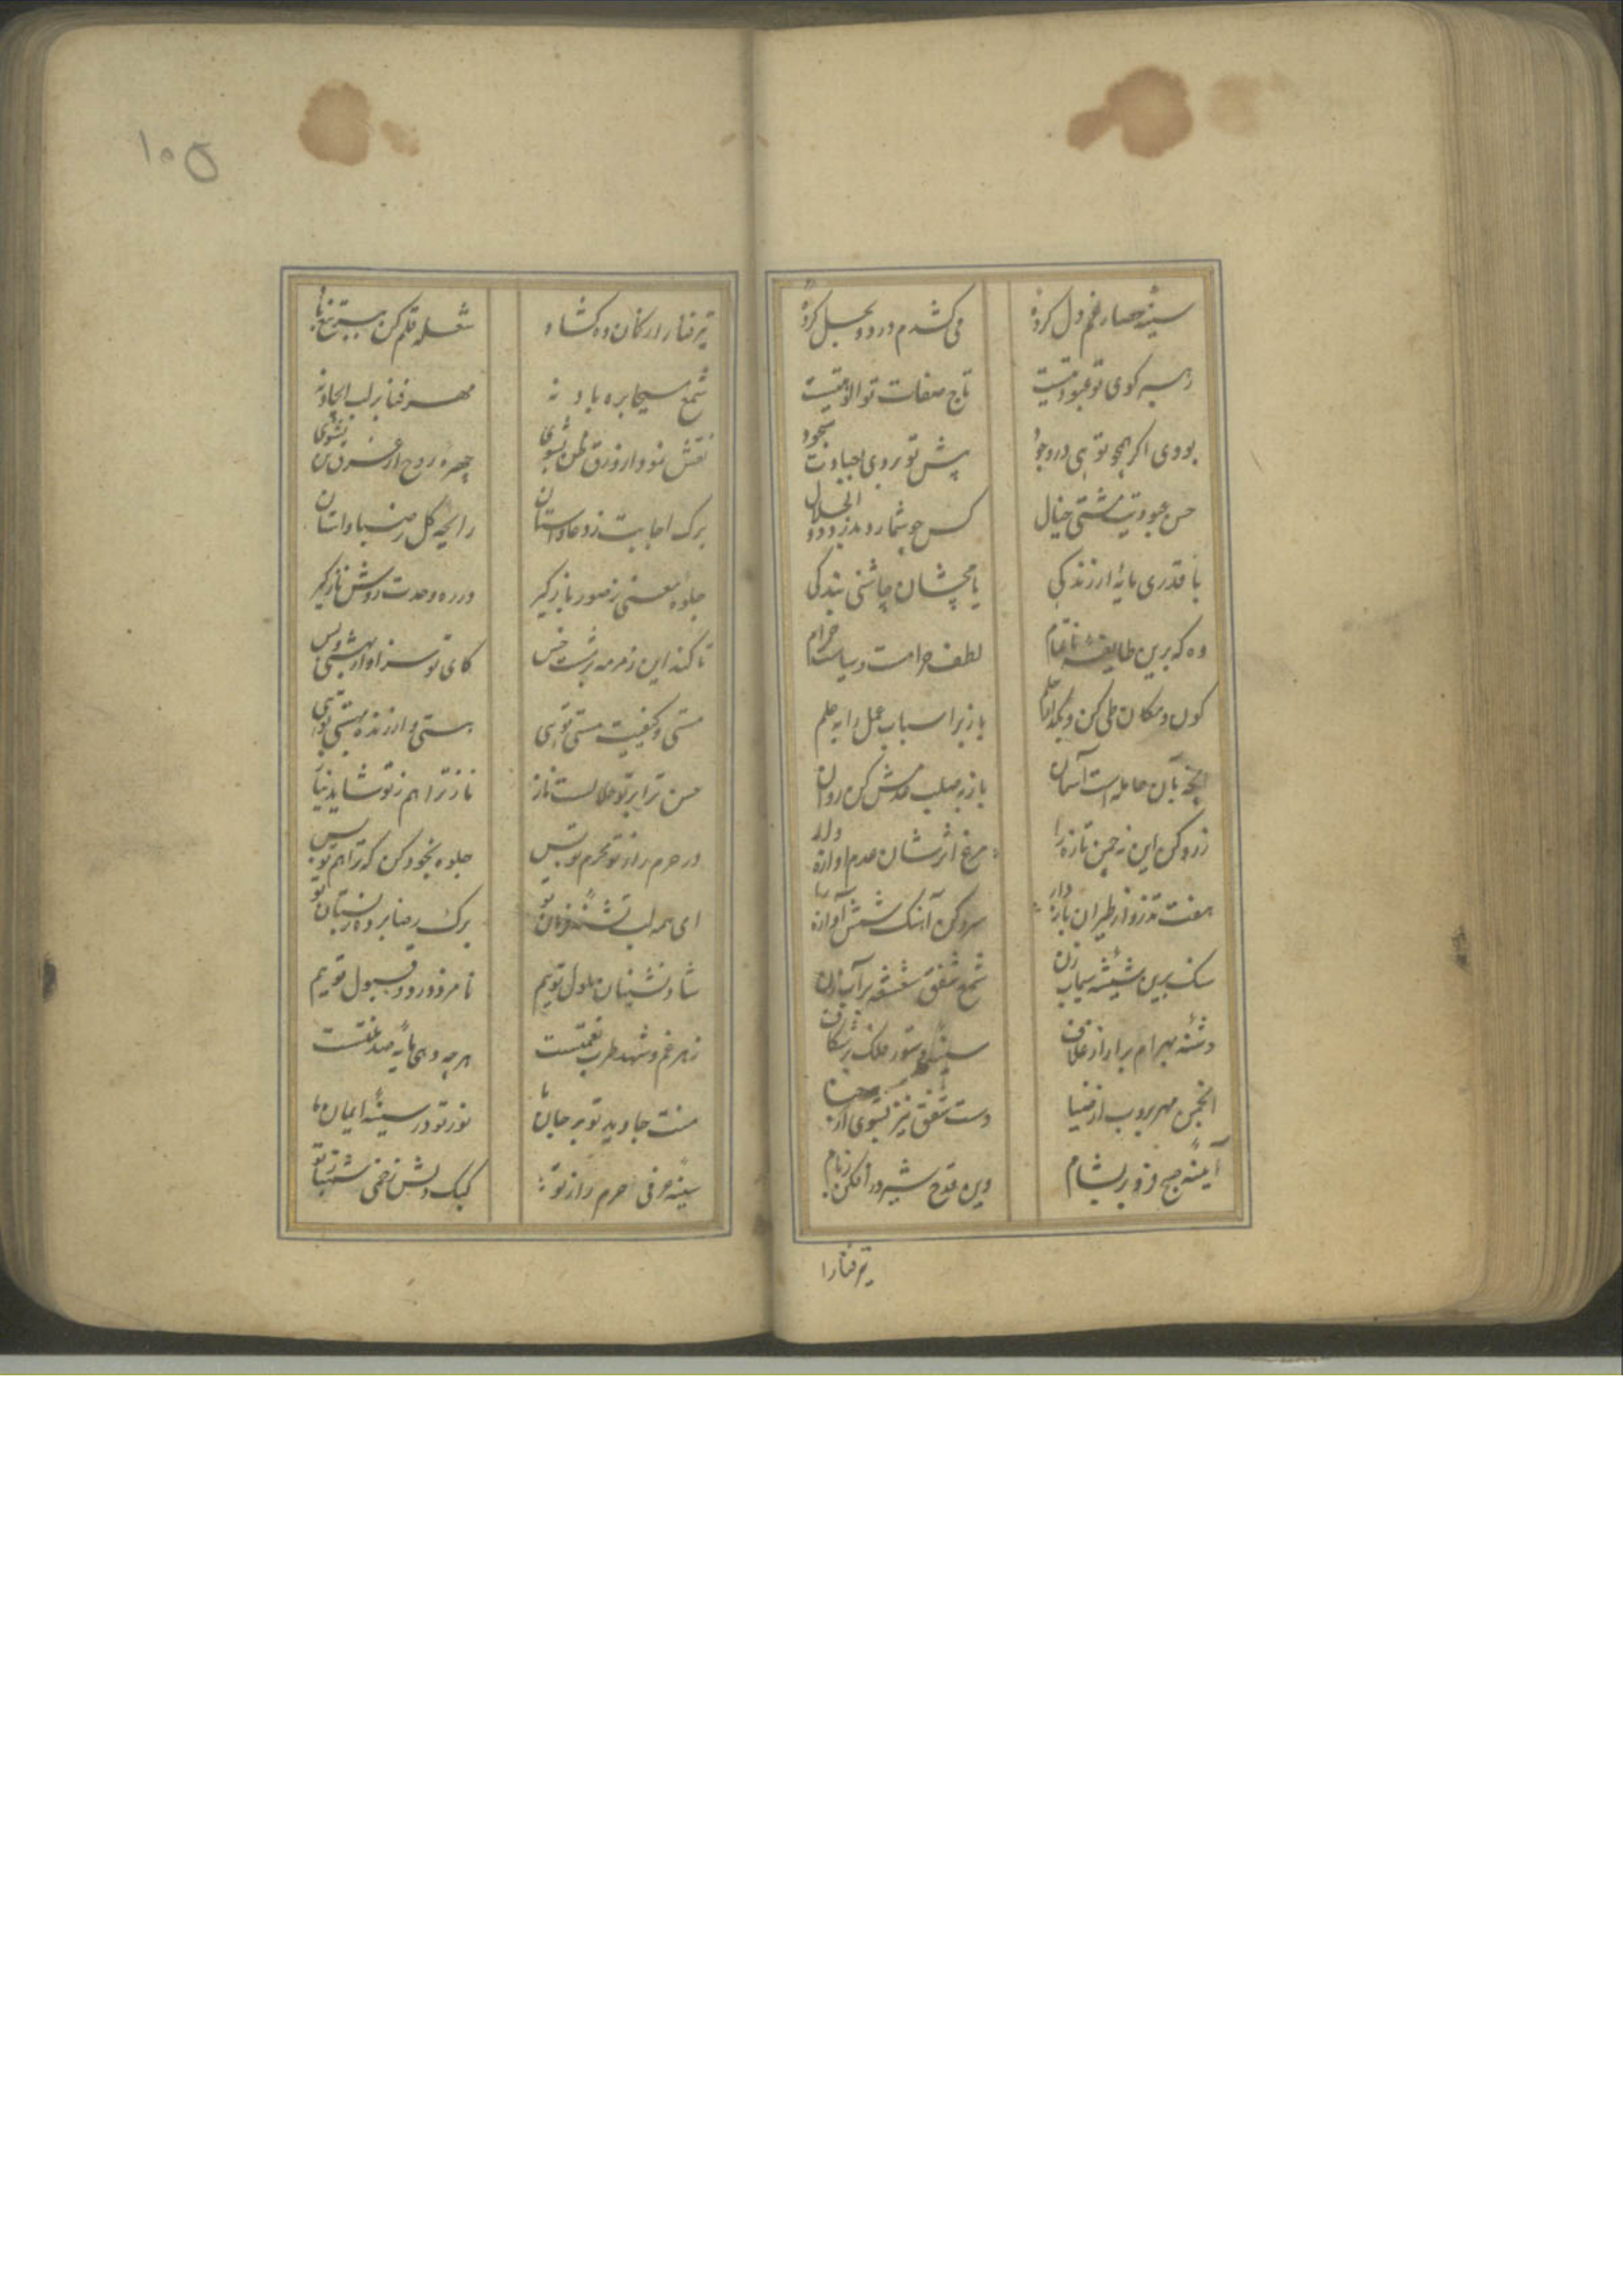 سینه حصار غم دل کرده
می کشدم درد و بحل کرده
رهبر کوی تو عبودیتیست
تاج صفات تو الوهیتیست
بودی اگر همچو تویی در وجود
پیش تو بر وی اجبادت سجود
حسن عبودیت مشتی خیال
کس چو شمارد ذوالجلال
با قدری مایه ارزندگی
یا مچشان چاشنی بندگی
وه که برین طایفه ناتمام
لطف حرامست و سیاست حرام
کون و مکان طی کن و
باز بر اسباب عمل را به علم
آنچه بآن حامله است آسمان
باز به صلب قدمش کن روان
زرد کن این نه چمن تازه را
مرغ اثرشان عدم آوازه
هفت تذرو از طیران باز دار
سرد کن آهنگ شش آوازه
سنگ برین شیشه سیماب زن
شمع شفق شعشعه بر آب زن
دشنه بهرام برار از غلاف
سینه فلک بر شکاف
انجمن مهر بروب از ضیا
دست شفق نیز بشوی از حنا
آینه صبح فرو بر بشام
وین قدح شیر در افکن ز بام
تیر فنا را
تیر فنا را از کمان ده گشاد
شعله قلم کن
شمع مسیحا بره باد نه
مهر فنا بر لب ایجاد نه
نقش نمودار ورق ظن بشوی
چهره روح از عرق تن بشوی
برگ اجابت ز دعا واستان
رایحه گل ز صبا واستان
جلوه معنی ز صور باز گیر
در ره وحدت روش ناز گیر
تا کند این زمزمه برشت خس
کای تو سزاوار بهشتی و بس
مستی و کیفیت مستی تویی
هستی و ارزنده هستی تویی
حسن ترا بر تو حلالست ناز
ناز ترا هم ز تو شاید نیاز
در حرم راز تو محرم تو بس
جلوه بخود کن که ترا هم تو بس
ای همه لب تشنه فرمان تو
برگ رضا بر در بستان تو
شاد نشینان ملول توییم
نامزد رد و قبول توییم
زهر غم و شهد طرب نعمتست
هر چه دهی مایه صد
منت جاوید تو بر جان ما
نور تو در سینه ایمان ما
سینه عرفی حرم راز تو
کبک دلش زخمی شهباز تو
۱۰۵